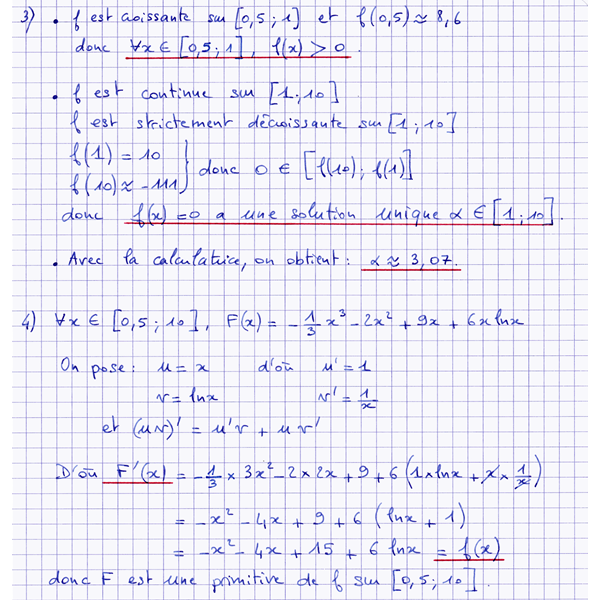 3) • f est croissante sur [0,5 ; 1] et f(0,5) ≈ 8,6
donc ∀x ∈ [0,5 ; 1], f(x) > 0.
• f est continue sur [1 ; 10]
f est strictement décroissante sur [1 ; 10]
f(1) = 10
f(10) ≈ -111 } donc 0 ∈ [f(10) ; f(1)]
donc f(x) = 0 a une solution unique α ∈ [1 ; 10].
• Avec la calculatrice, on obtient : α ≈ 3,07.
4) ∀x ∈ [0,5 ; 10], F(x) = -1/3 x³ - 2x² + 9x + 6x lnx
On pose : u = x d'où u' = 1
v = lnx v' = 1/x
et (uv)' = u'v + uv'
D'où F'(x) = -1/3 × 3x² - 2 × 2x + 9 + 6 (1 × lnx + x × 1/x)
= -x² - 4x + 9 + 6 (lnx + 1)
= -x² - 4x + 15 + 6 lnx = f(x)
donc F est une primitive de f sur [0,5 ; 10].